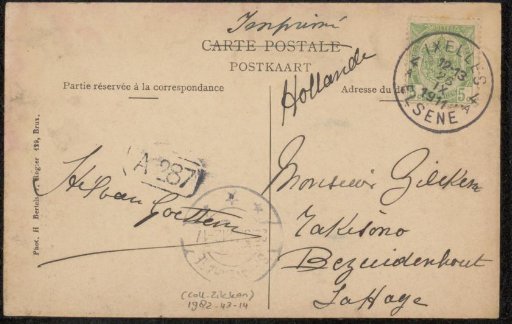 Imprimé
CARTE POSTALE
POSTKAART
Hollande
Partie réservée à la correspondance
Adresse du
IXELLES 4
12-13
IX
1911
ELSENE 4
A 287
Monsieur Zilcken
Bezuidenhout
La Haye
Phot. H Bertels, 139, Brux.
(Coll. Zilcken)
1982-43-14